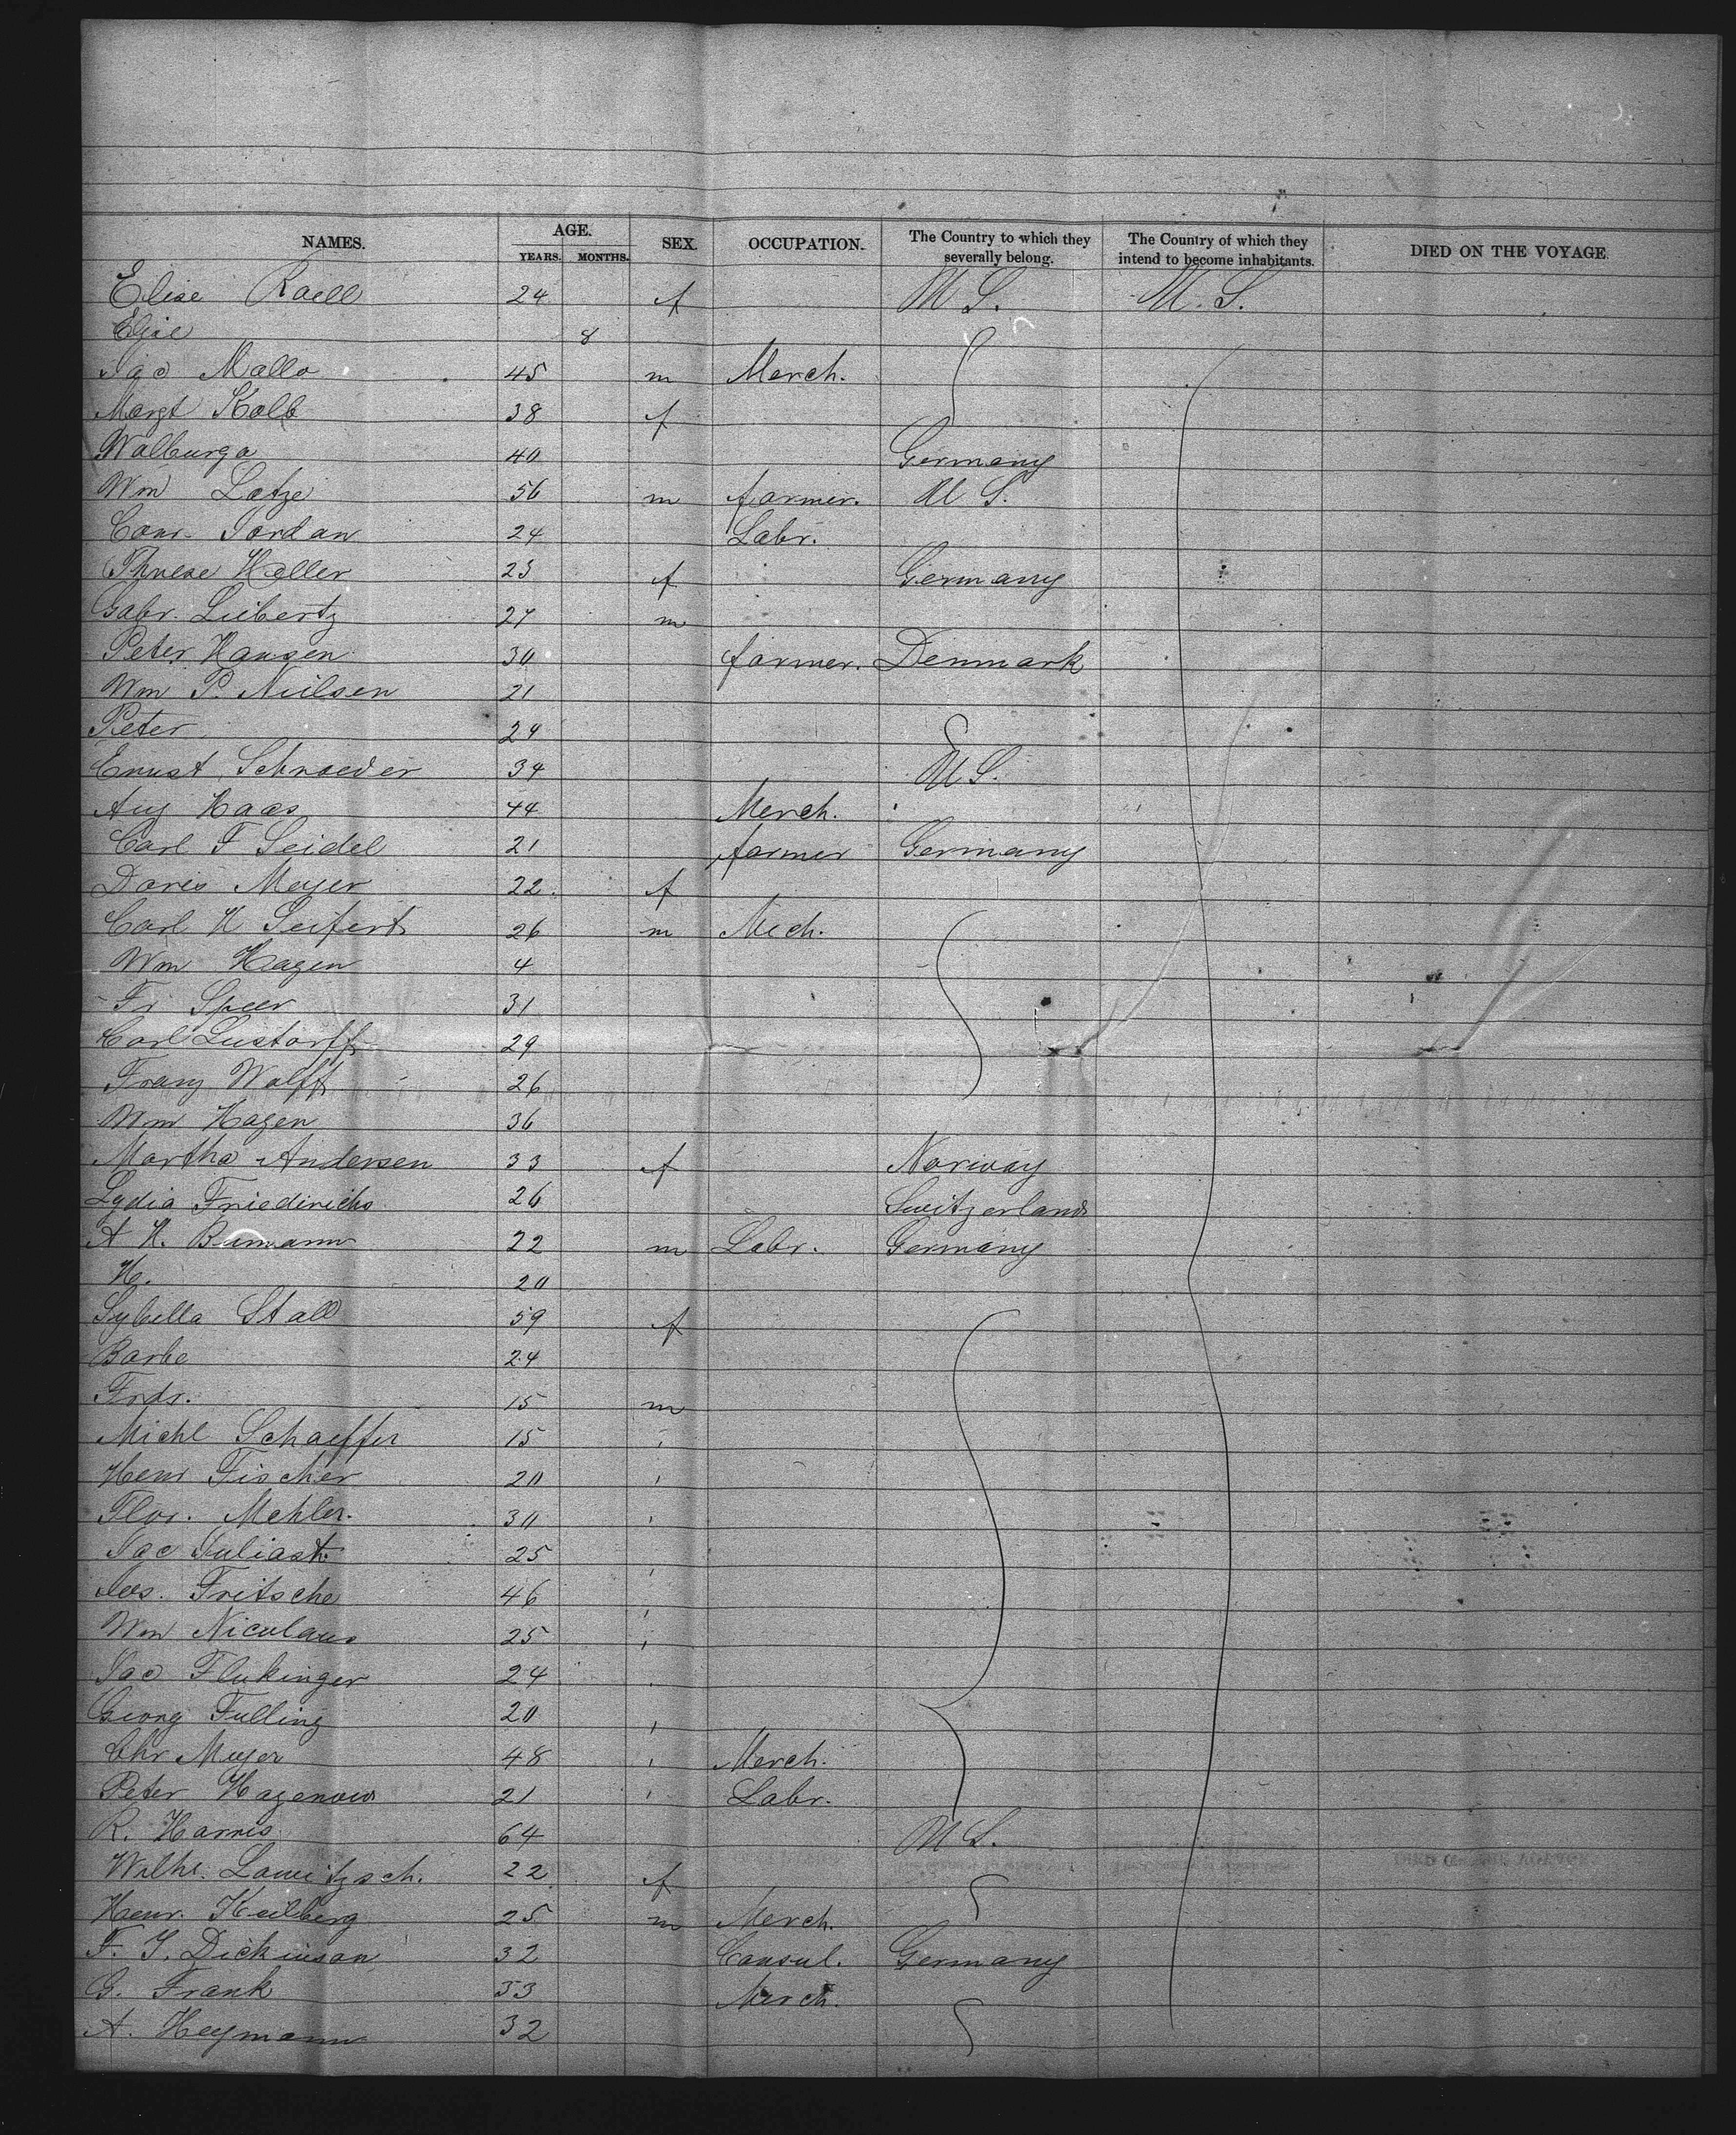 NAMES. AGE. SEX. OCCUPATION. The Country to which they severally belong. The Country of which they intend to become inhabitants. DIED ON THE VOYAGE
YEARS. MONTHS.
Elise Raell 24 f U S. U. S.
Elise 8
Jac Malla 45 m Merch.
Margt Kalb 38 f
Walburga 40 Germany
Wm Latze 56 m farmer. U S.
Conr. Jordan 24 Labr.
Therese Heller 23 f Germany
Gabr. Liebertz 27 m
Peter Hansen 30 farmer. Denmark
Wm P. Nielsen 21
Peter 24
Ernst Schroeder 34 U S.
Aug Haas 44 Merch.
Carl F Seidel 21 farmer Germany
Doris Meyer 22 f
Carl H Seifert 26 m Mech.
Wm Hagen 4
Fr Speer 31
Carl Lustorff 29
Franz Wolff 26
Wm Hagen 36
Martha Andersen 33 f Norway
Lydia Friedrichs 26 Switzerland
A H. 22 m Labr. Germany
H. 20
Sybella Stall 59 f
Barba 24
Frdr. 15 m
Michl Schaeffer 15
Henr Fischer 20
Flor. Mehler. 30
Jac 25
Jos. Fritsche 46
Wm Nicolaus 25
Jac Flukinger 24
Georg Fulling 20
Chr Meyer 48 Merch.
Peter Hagenow 21 Labr.
R. Harris 64 U S.
Wilhe. 22 f
Henr. Keilberg 25 m Merch.
F. J. Dickinson 32 Consul. Germany
G. Frank 53 Merch.
A. Heymann 32